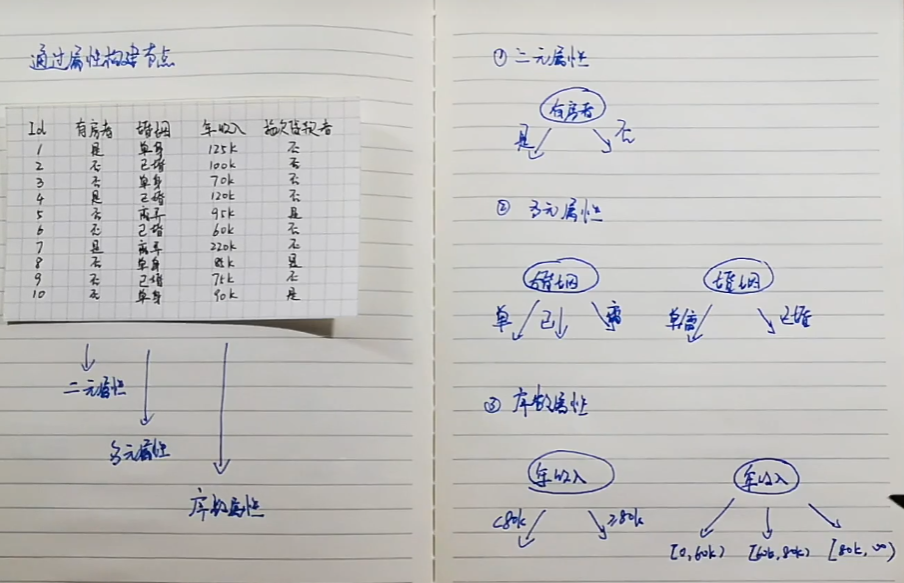 通过属性构建节点
Id 有房者 婚姻 年收入 拖欠贷款者
1 是 单身 125k 否
2 否 已婚 100k 否
3 否 单身 70k 否
4 是 已婚 120k 否
5 否 离异 95k 是
6 否 已婚 60k 否
7 是 离异 220k 否
8 否 单身 是
9 否 已婚 75k 否
10 否 单身 90k 是
二元属性
多元属性
序数属性
① 二元属性
有房者
是 否
② 多元属性
婚姻 婚姻
单 已 离 单离 已婚
③ 序数属性
年收入 年收入
<80k ≥80k
[0,60k) [60k,80k) [80k,∞)